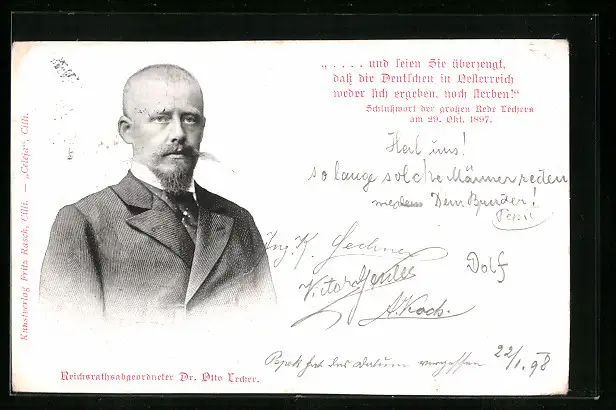 „ . . . . und seien Sie überzeugt,
daß die Deutschen in Oesterreich
weder sich ergeben, noch sterben!“
Schlußwort der großen Rede Lechers
am 29. Okt. 1897.
Heil uns!
so lange solche Männer reden
Dein Bruder!
Pepi
Ing. K. Lechner
Dolf
Victor
A. Koch.
Pepek hat das Datum vergessen 22/1. 98
Reichsrathsabgeordneter Dr. Otto Lecher.
Kunstverlag Fritz Rasch, Cilli. — „Celeja“, Cilli.